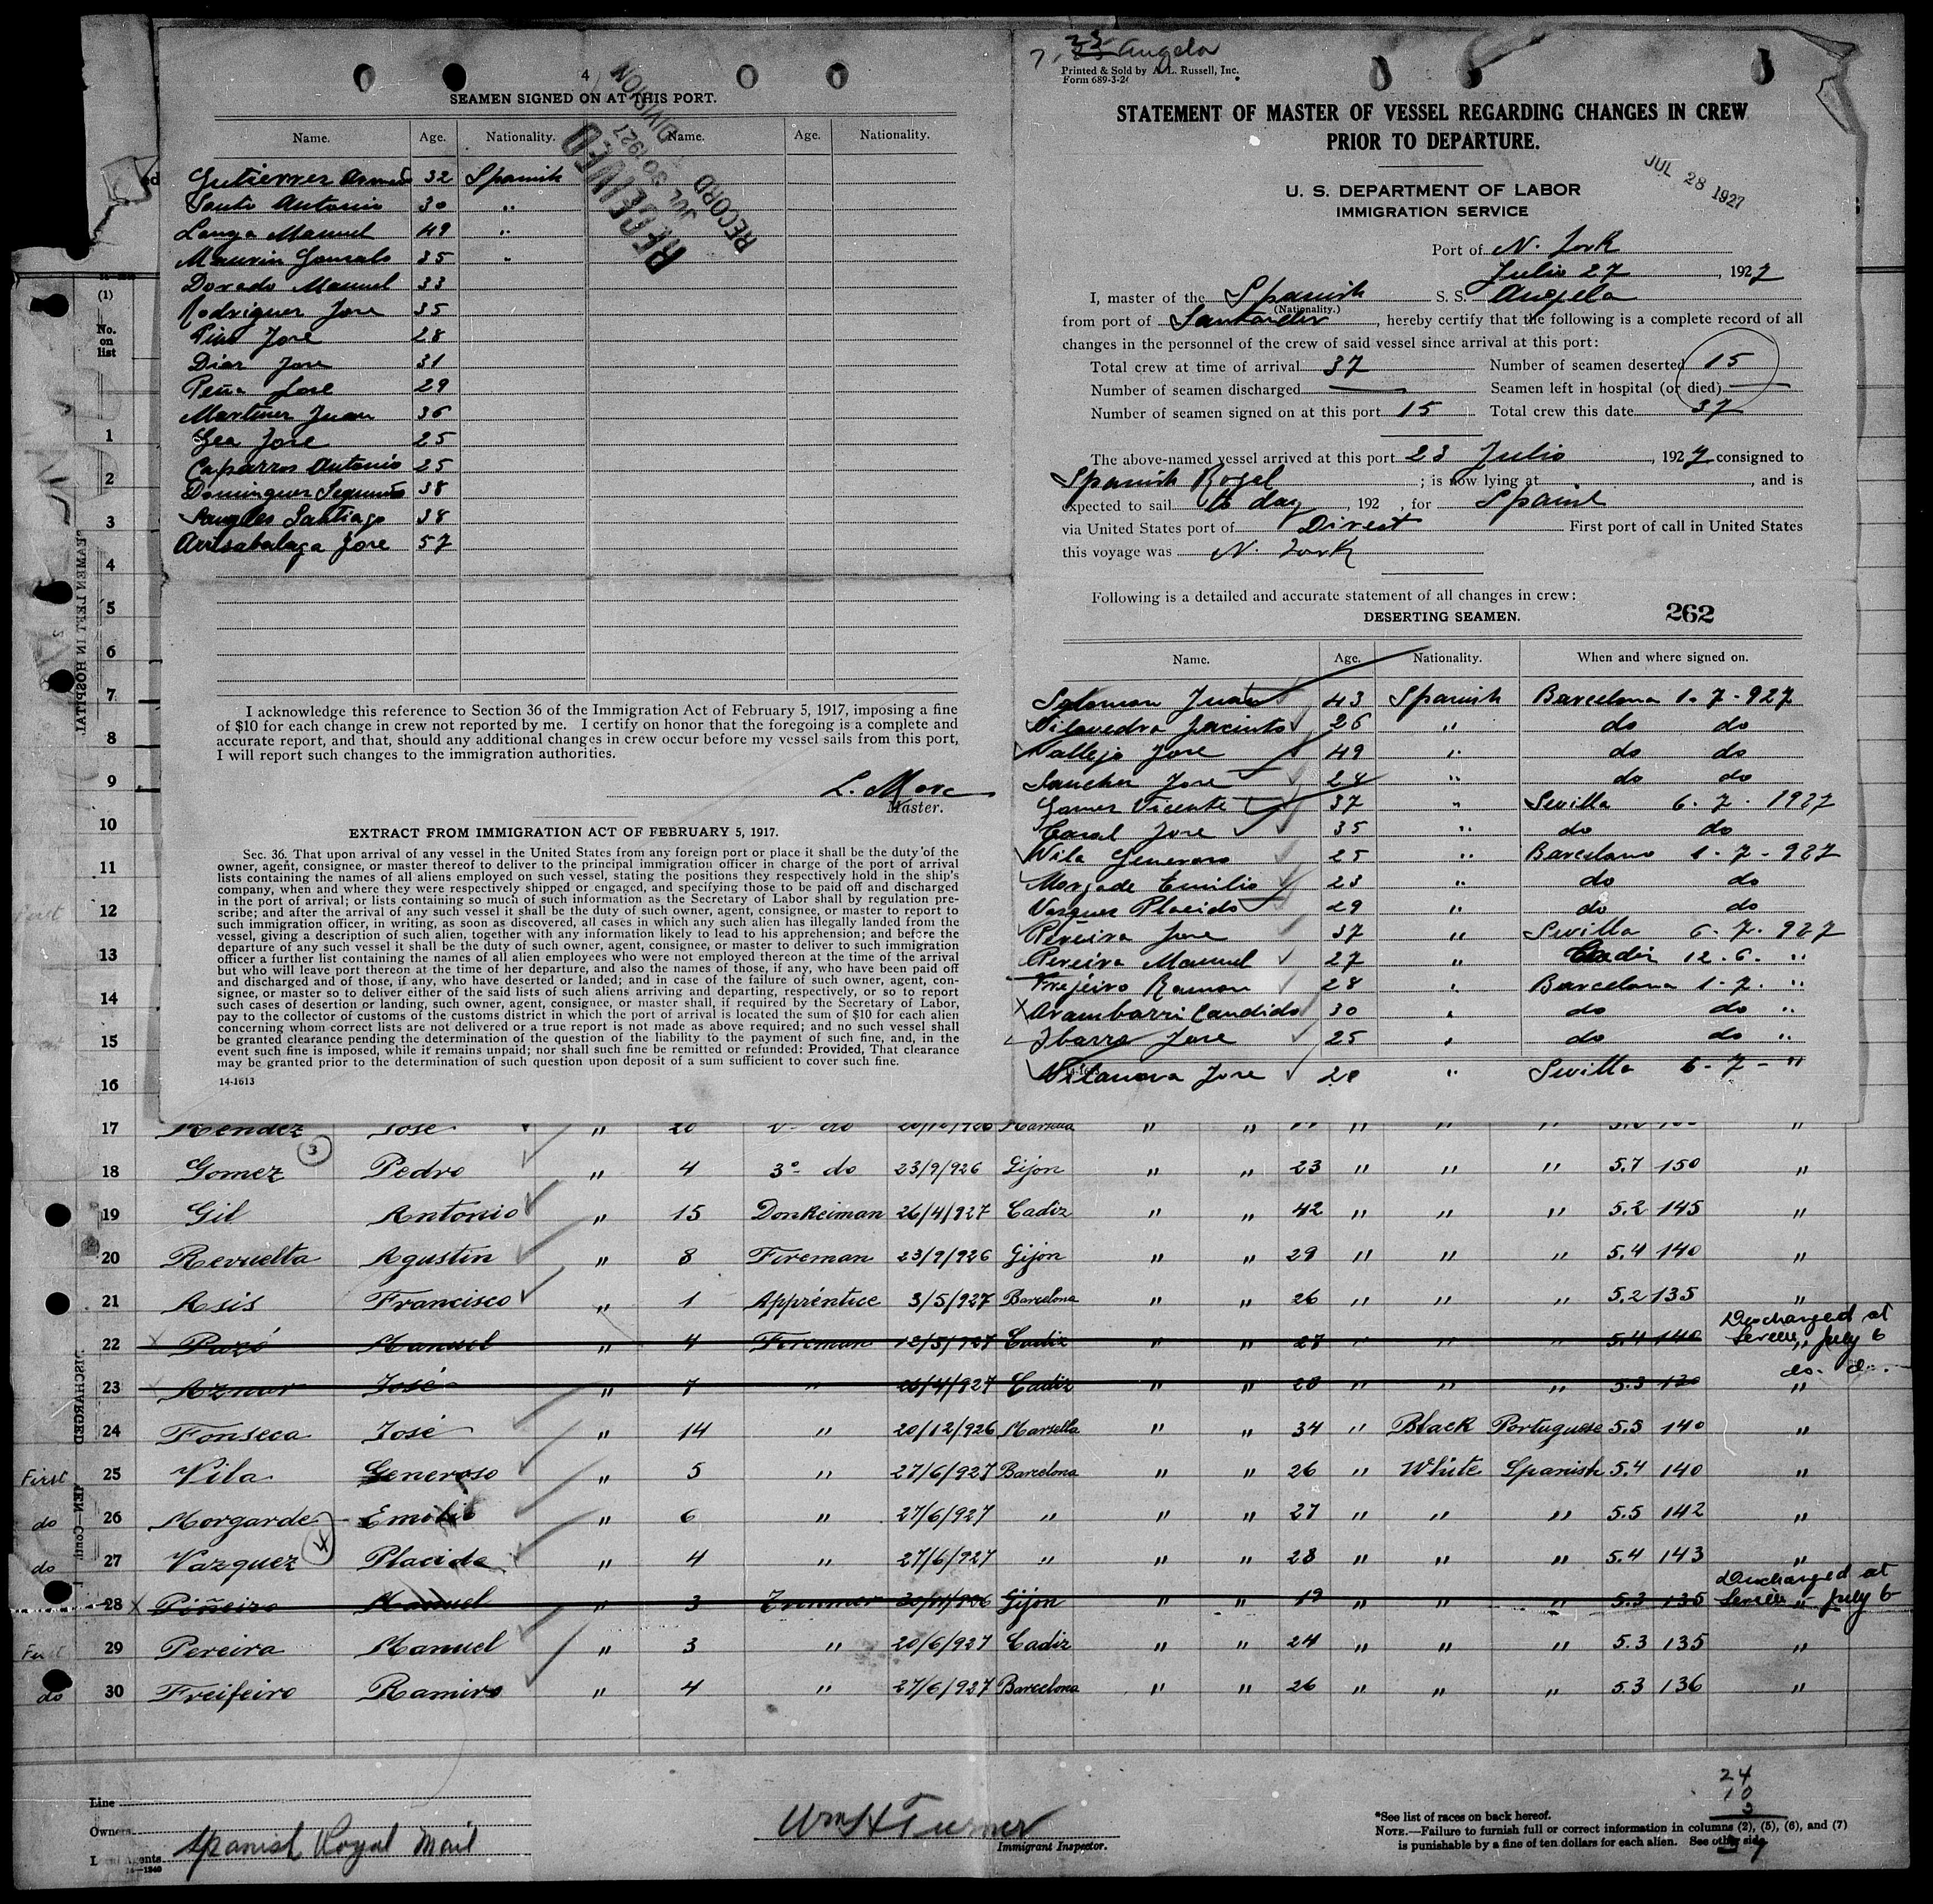 4
SEAMEN SIGNED ON AT THIS PORT.
Name. Age. Nationality. Name. Age. Nationality.
RECEIVED
JUL 30 1927
RECORD DIVISION
Gutierrez 32 Spanish
Santo Antonio 30 "
Langa Manuel 49 "
Maurin Gonzalo 35 "
Dorado Manuel 33
Rodriguez Jose 35
Jose 28
Diaz Jose 31
Peña Jose 29
Martinez Juan 36
Gea Jose 25
Caparros Antonio 25
Dominguez Segundo 38
Santiago 38
Arrisabalaga Jose 57
I acknowledge this reference to Section 36 of the Immigration Act of February 5, 1917, imposing a fine
of $10 for each change in crew not reported by me. I certify on honor that the foregoing is a complete and
accurate report, and that, should any additional changes in crew occur before my vessel sails from this port,
I will report such changes to the immigration authorities.
L. More
Master.
EXTRACT FROM IMMIGRATION ACT OF FEBRUARY 5, 1917.
Sec. 36. That upon arrival of any vessel in the United States from any foreign port or place it shall be the duty of the
owner, agent, consignee, or master thereof to deliver to the principal immigration officer in charge of the port of arrival
lists containing the names of all aliens employed on such vessel, stating the positions they respectively hold in the ship's
company, when and where they were respectively shipped or engaged, and specifying those to be paid off and discharged
in the port of arrival; or lists containing so much of such information as the Secretary of Labor shall by regulation pre-
scribe; and after the arrival of any such vessel it shall be the duty of such owner, agent, consignee, or master to report to
such immigration officer, in writing, as soon as discovered, all cases in which any such alien has illegally landed from the
vessel, giving a description of such alien, together with any information likely to lead to his apprehension; and before the
departure of any such vessel it shall be the duty of such owner, agent, consignee, or master to deliver to such immigration
officer a further list containing the names of all alien employees who were not employed thereon at the time of the arrival
but who will leave port thereon at the time of her departure, and also the names of those, if any, who have been paid off
and discharged and of those, if any, who have deserted or landed; and in case of the failure of such owner, agent, con-
signee, or master so to deliver either of the said lists of such aliens arriving and departing, respectively, or so to report
such cases of desertion or landing, such owner, agent, consignee, or master shall, if required by the Secretary of Labor,
pay to the collector of customs of the customs district in which the port of arrival is located the sum of $10 for each alien
concerning whom correct lists are not delivered or a true report is not made as above required; and no such vessel shall
be granted clearance pending the determination of the question of the liability to the payment of such fine, and, in the
event such fine is imposed, while it remains unpaid; nor shall such fine be remitted or refunded: Provided, That clearance
may be granted prior to the determination of such question upon deposit of a sum sufficient to cover such fine.
14-1613
Angela
Printed & Sold by A. L. Russell, Inc.
Form 689-3-2
STATEMENT OF MASTER OF VESSEL REGARDING CHANGES IN CREW
PRIOR TO DEPARTURE.
JUL 28 1927
U. S. DEPARTMENT OF LABOR
IMMIGRATION SERVICE
Port of N. York
Julio 27, 1927
I, master of the Spanish S. S. Angela
(Nationality.)
from port of Santander, hereby certify that the following is a complete record of all
changes in the personnel of the crew of said vessel since arrival at this port:
Total crew at time of arrival 37 Number of seamen deserted 15
Number of seamen discharged — Seamen left in hospital (or died) —
Number of seamen signed on at this port 15 Total crew this date 37
The above-named vessel arrived at this port 23 Julio, 1927 consigned to
Spanish Rogal; is now lying at , and is
expected to sail to day, 192 , for Spaint
via United States port of Direct First port of call in United States
this voyage was N. York
Following is a detailed and accurate statement of all changes in crew:
DESERTING SEAMEN. 262
Name. Age. Nationality. When and where signed on.
Salomon Juan 43 Spanish Barcelona 1-7-927
Vilavedra Jacinto 26 " do do
Vallejo Jose 49 " do do
Sanchez Jose 24 " do do
Gomez Vicente 37 " Sevilla 6-7-1927
Casal Jose 35 " do do
Vila Generoso 25 " Barcelano 1-7-927
Morgade Emilio 23 " do do
Vazquez Placido 29 " do do
Pereira Jose 37 " Sevilla 6-7-927
Pereira Manuel 27 " Cadiz 12-6- "
Frejeiro Ramon 28 " Barcelona 1-7- "
X Arambarri Candido 30 " do do "
Ibarra Jose 25 " do do "
Vilanova Jose 28 " Sevilla 6-7- "
(1)
No. on list
1
2
3
4
5
6
7
8
9
10
11
12
13
14
15
16
17 Mendez Jose
18 Gomez Pedro " 4 3º do 23/9/926 Gijon " " 23 " " " 5.7 150 "
19 Gil Antonio " 15 Donkeiman 26/4/927 Cadiz " " 42 " " " 5.2 145 "
20 Revuelta Agustin " 8 Fireman 23/9/926 Gijon " " 29 " " " 5.4 140 "
21 Asis Francisco " 1 Appréntice 3/5/927 Barcelona " " 26 " " " 5.2 135 "
22 Manuel " 4 Fireman 12/5/927 Cadiz 27 " " " 5.4 140 Discharged at Seville, July 6
23 Aznar José " 7 " 26/4/927 Cadiz " " 28 " " " 5.3 130 do. do.
24 Fonseca José " 14 " 20/12/926 Marsella " " 34 " Black Portuguese 5.5 140 "
First 25 Vila Generoso " 5 " 27/6/927 Barcelona " " 26 " White Spanish 5.4 140 "
do 26 Morgarde Emilio " 6 " 27/6/927 " " " 27 " " " 5.5 142 "
do 27 Vazquez Placido " 4 " 27/6/927 " " " 28 " " " 5.4 143 "
28 X Piñeiro Manuel " 3 Trimmer Gijon " " 19 " " " 5.3 135 Discharged at Seville July 6
First 29 Pereira Manuel " 3 " 20/6/927 Cadiz " " 24 " " " 5.3 135 "
do 30 Freifeiro Ramiro " 4 " 27/6/927 Barcelona " " 26 " " " 5.3 136 "
24
10
3
Line
Owners
Local Agents Spanish Royal Mail
14-1240
Wm H Turner
Immigrant Inspector.
*See list of races on back hereof.
NOTE.—Failure to furnish full or correct information in columns (2), (5), (6), and (7)
is punishable by a fine of ten dollars for each alien. See other side.